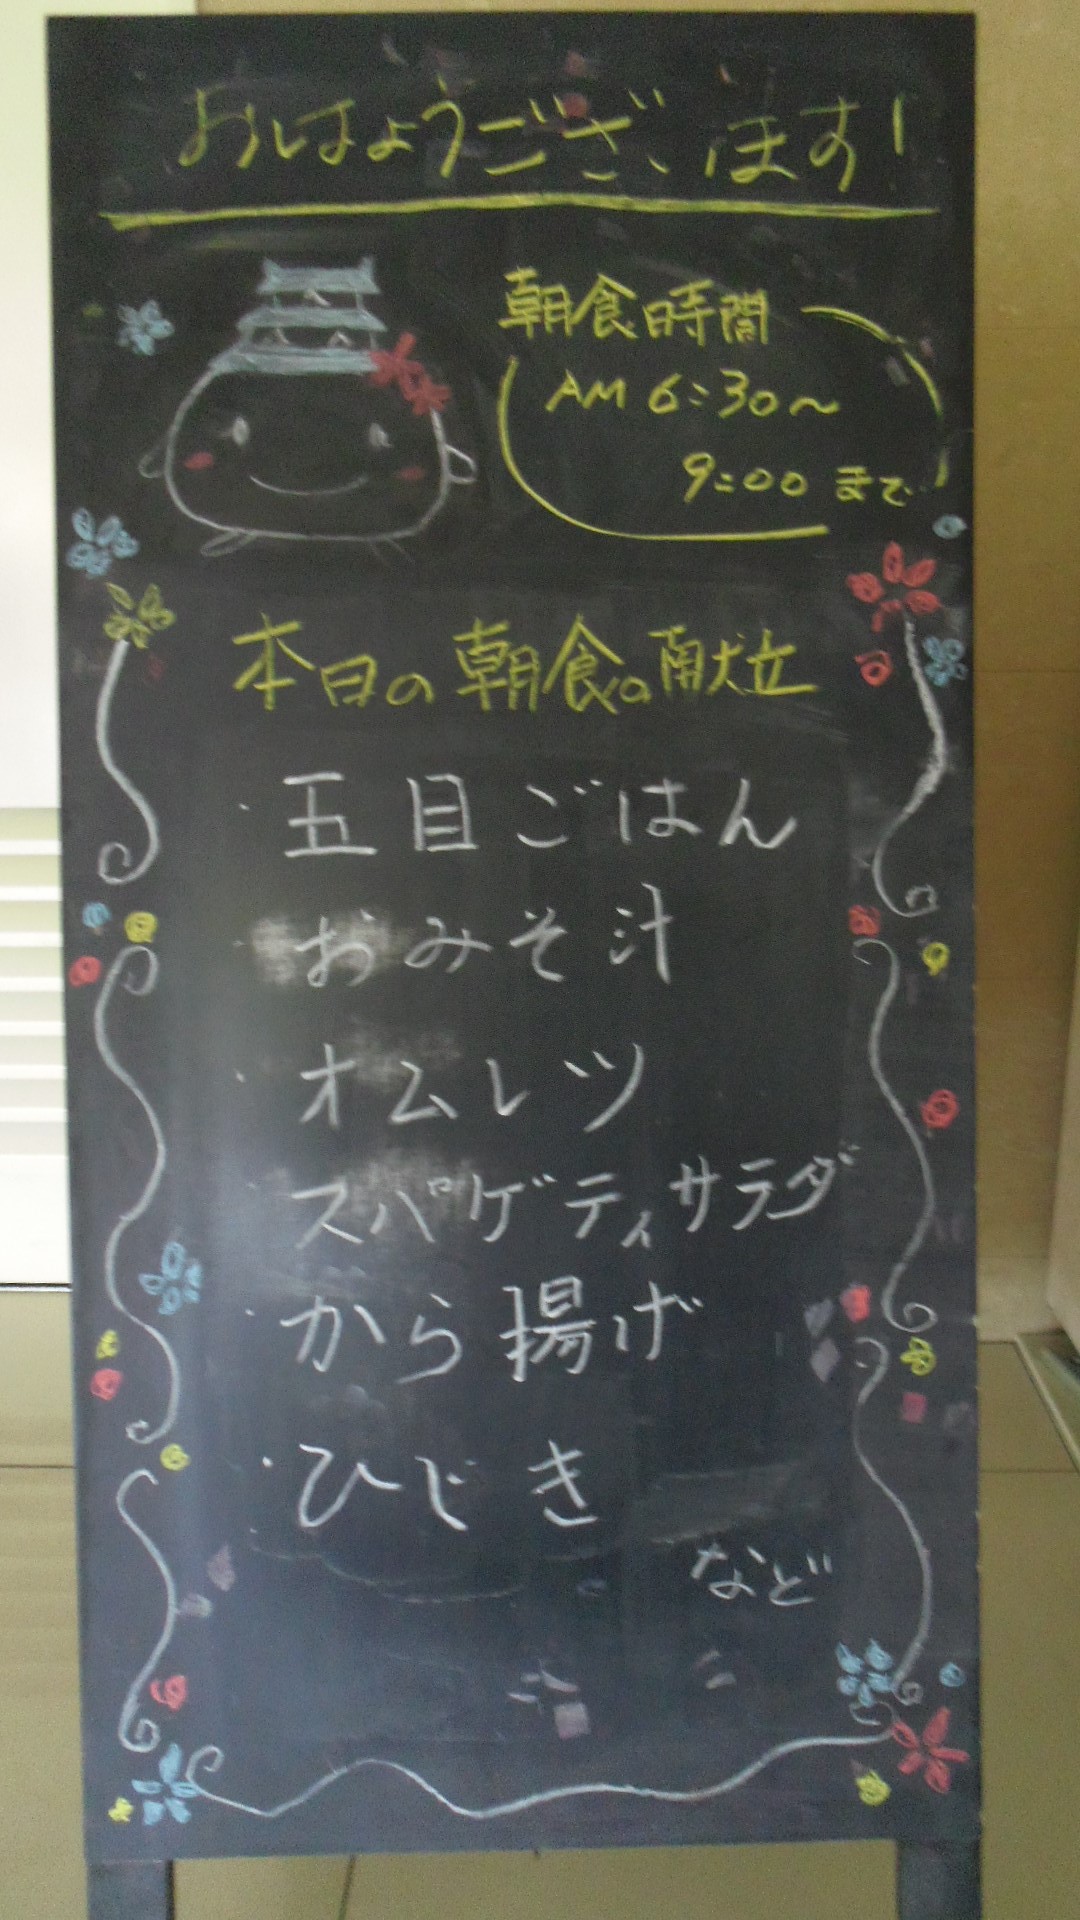 おはようございます!
朝食時間
AM 6:30～
9:00 まで
本日の朝食の献立
・五目ごはん
・おみそ汁
・オムレツ
・スパゲティサラダ
・から揚げ
・ひじき
など